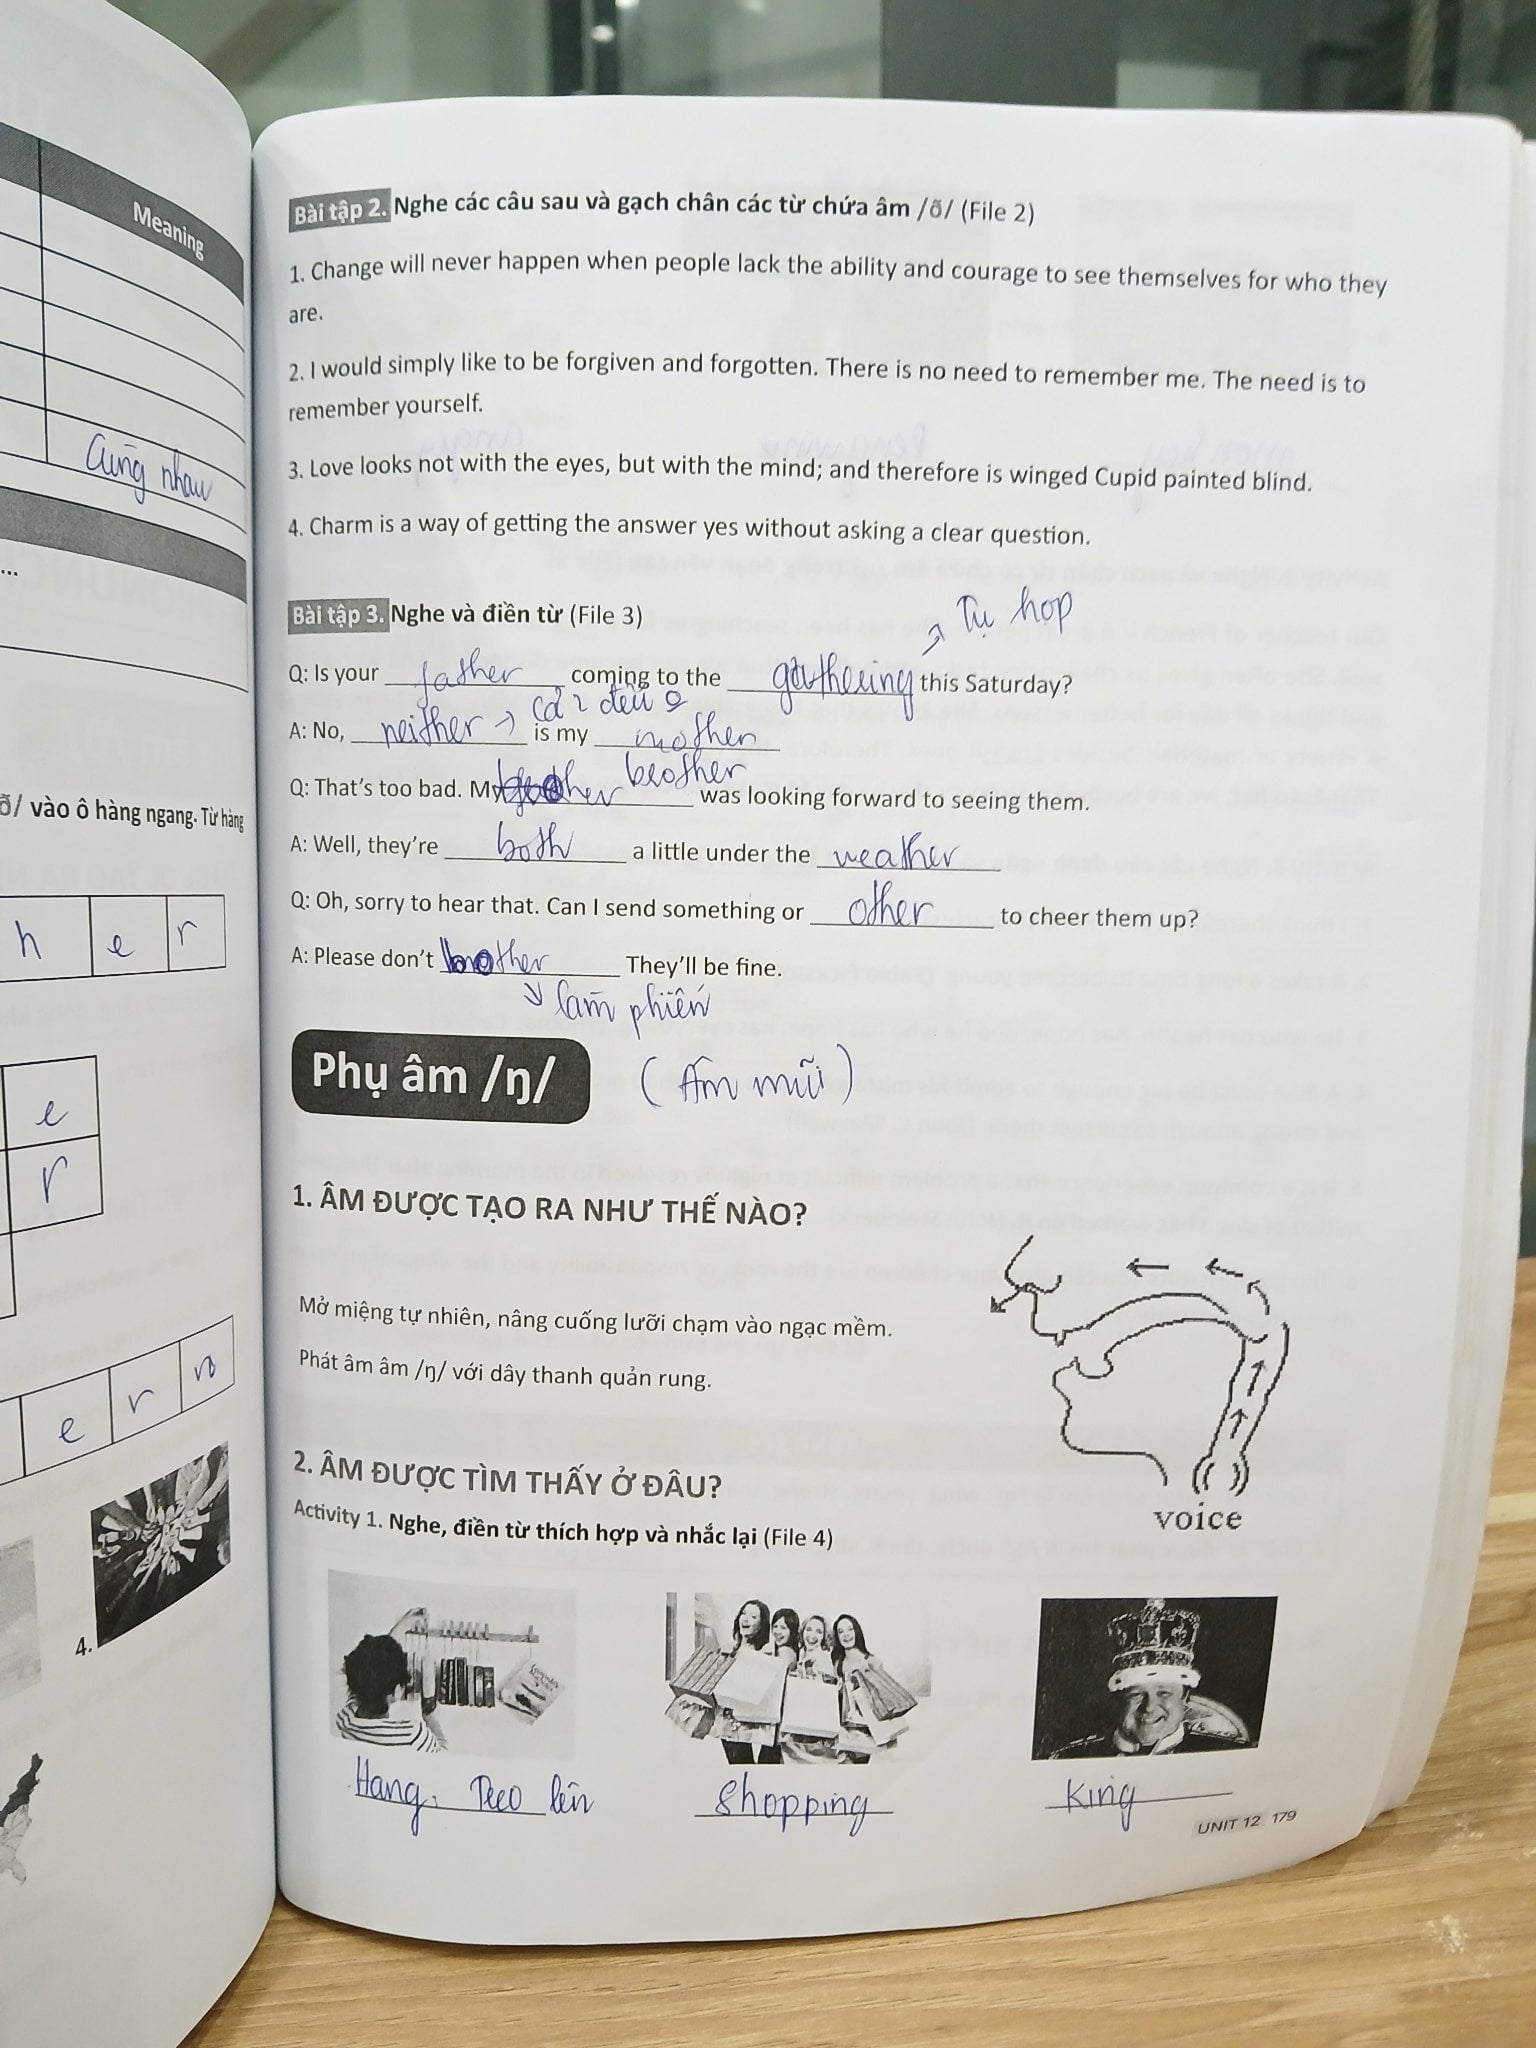 Meaning
Cùng nhau
...
ð/ vào ô hàng ngang. Từ hàng
h e r
e
r
e r n
4.
Bài tập 2. Nghe các câu sau và gạch chân các từ chứa âm /ð/ (File 2)
1. Change will never happen when people lack the ability and courage to see themselves for who they
are.
2. I would simply like to be forgiven and forgotten. There is no need to remember me. The need is to
remember yourself.
3. Love looks not with the eyes, but with the mind; and therefore is winged Cupid painted blind.
4. Charm is a way of getting the answer yes without asking a clear question.
Tụ họp
Bài tập 3. Nghe và điền từ (File 3)
Q: Is your father coming to the gathering this Saturday?
cả 2 đều
A: No, neither → is my mother
brother
Q: That's too bad. My was looking forward to seeing them.
A: Well, they're both a little under the weather
Q: Oh, sorry to hear that. Can I send something or other to cheer them up?
A: Please don't bother They'll be fine.
làm phiền
Phụ âm /ŋ/ (Âm mũi)
1. ÂM ĐƯỢC TẠO RA NHƯ THẾ NÀO?
Mở miệng tự nhiên, nâng cuống lưỡi chạm vào ngạc mềm.
Phát âm âm /ŋ/ với dây thanh quản rung.
voice
2. ÂM ĐƯỢC TÌM THẤY Ở ĐÂU?
Activity 1. Nghe, điền từ thích hợp và nhắc lại (File 4)
Hang, Treo lên shopping King
UNIT 12 179